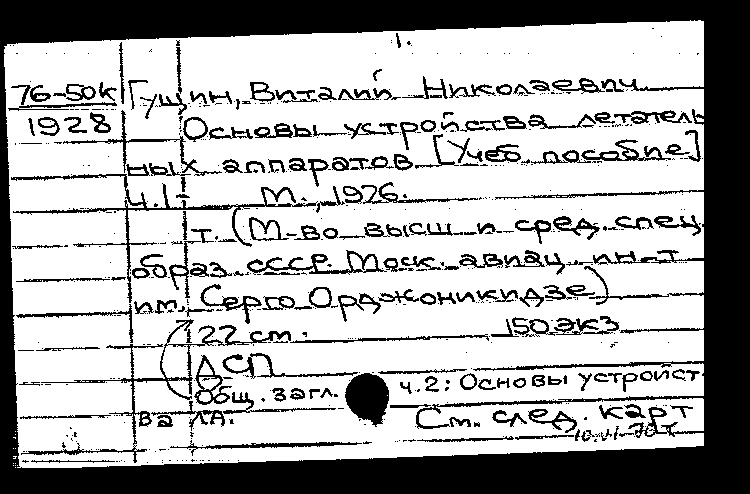 1.
76-50к Гущин, Виталий Николаевич
1928 Основы устройства летатель
ных аппаратов [Учеб. пособие]
Ч.1- М., 1976.
т. (М-во высш и сред. спец.
образ. СССР. Моск. авиац. ин-т
им. Серго Орджоникидзе)
22 см. 150 экз
ДСП
Общ. загл. ч.2: Основы устройст-
ва ЛА. См. след. карт